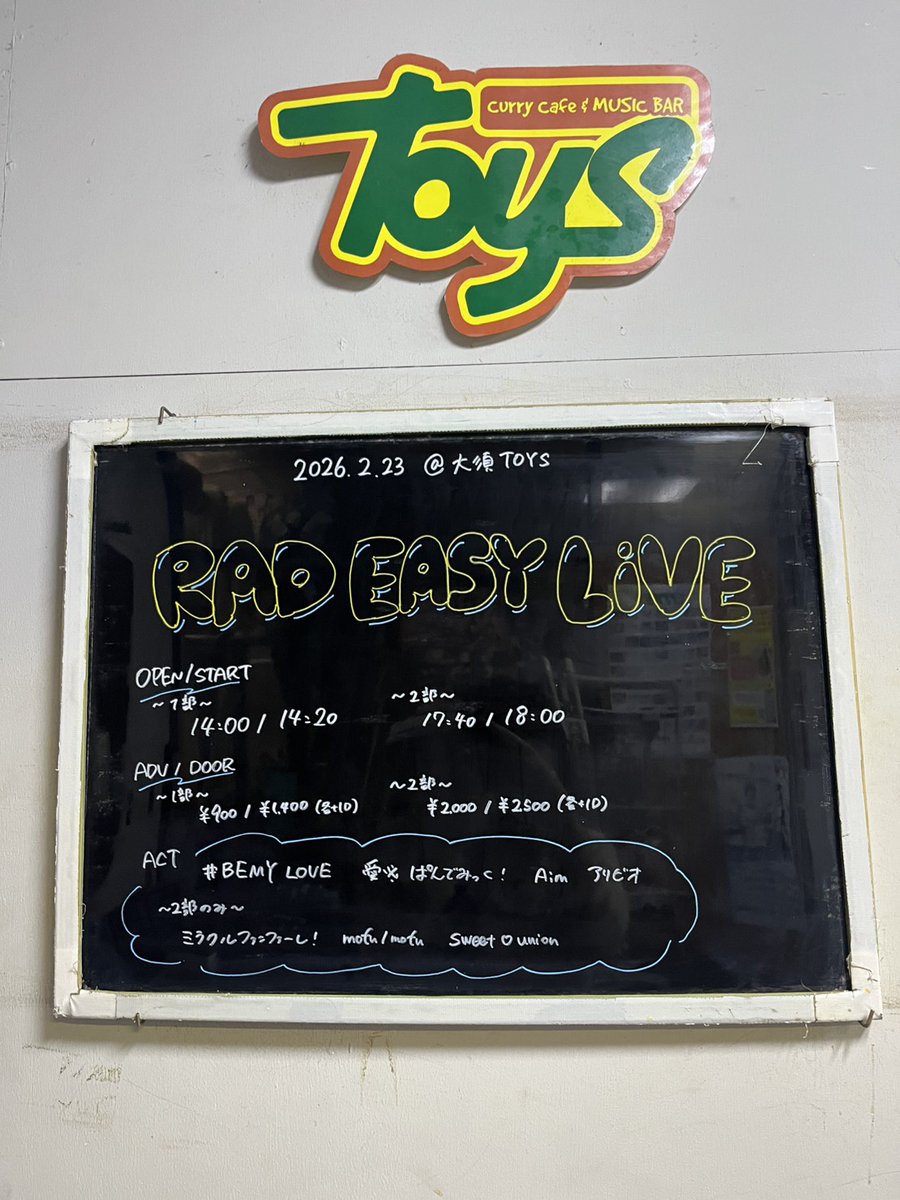 curry cafe & MUSIC BAR
Toys
2026.2.23 @大須TOYS
RAD EASY LiVE
OPEN/START
~1部~ ~2部~
14:00 / 14:20 17:40 / 18:00
ADV / DOOR
~1部~ ~2部~
¥900 / ¥1,400 (各+1D) ¥2000 / ¥2500 (各+1D)
ACT #BEMY LOVE 愛ぱんでみっく! Aim アリビオ
~2部のみ~
ミラクルファンファーレ! mofu/mofu sweet♡union